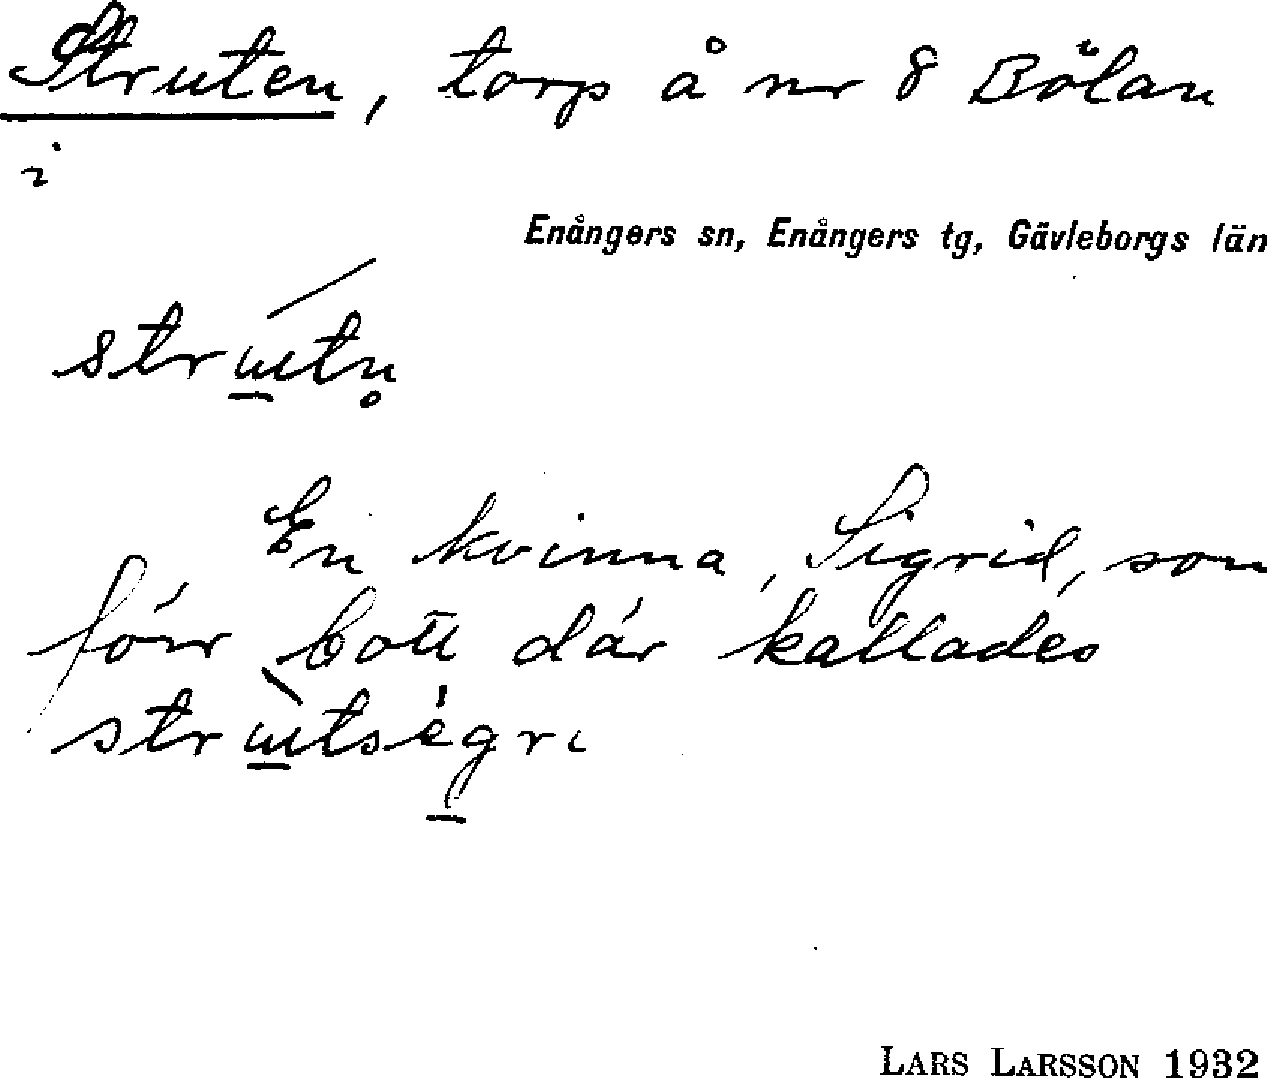 Struten, torp å nr 8 Bölan
i
Enångers sn, Enångers tg, Gävleborgs län
En kvinna, Sigrid, som
förr bott där kallades
LARS LARSSON 1932